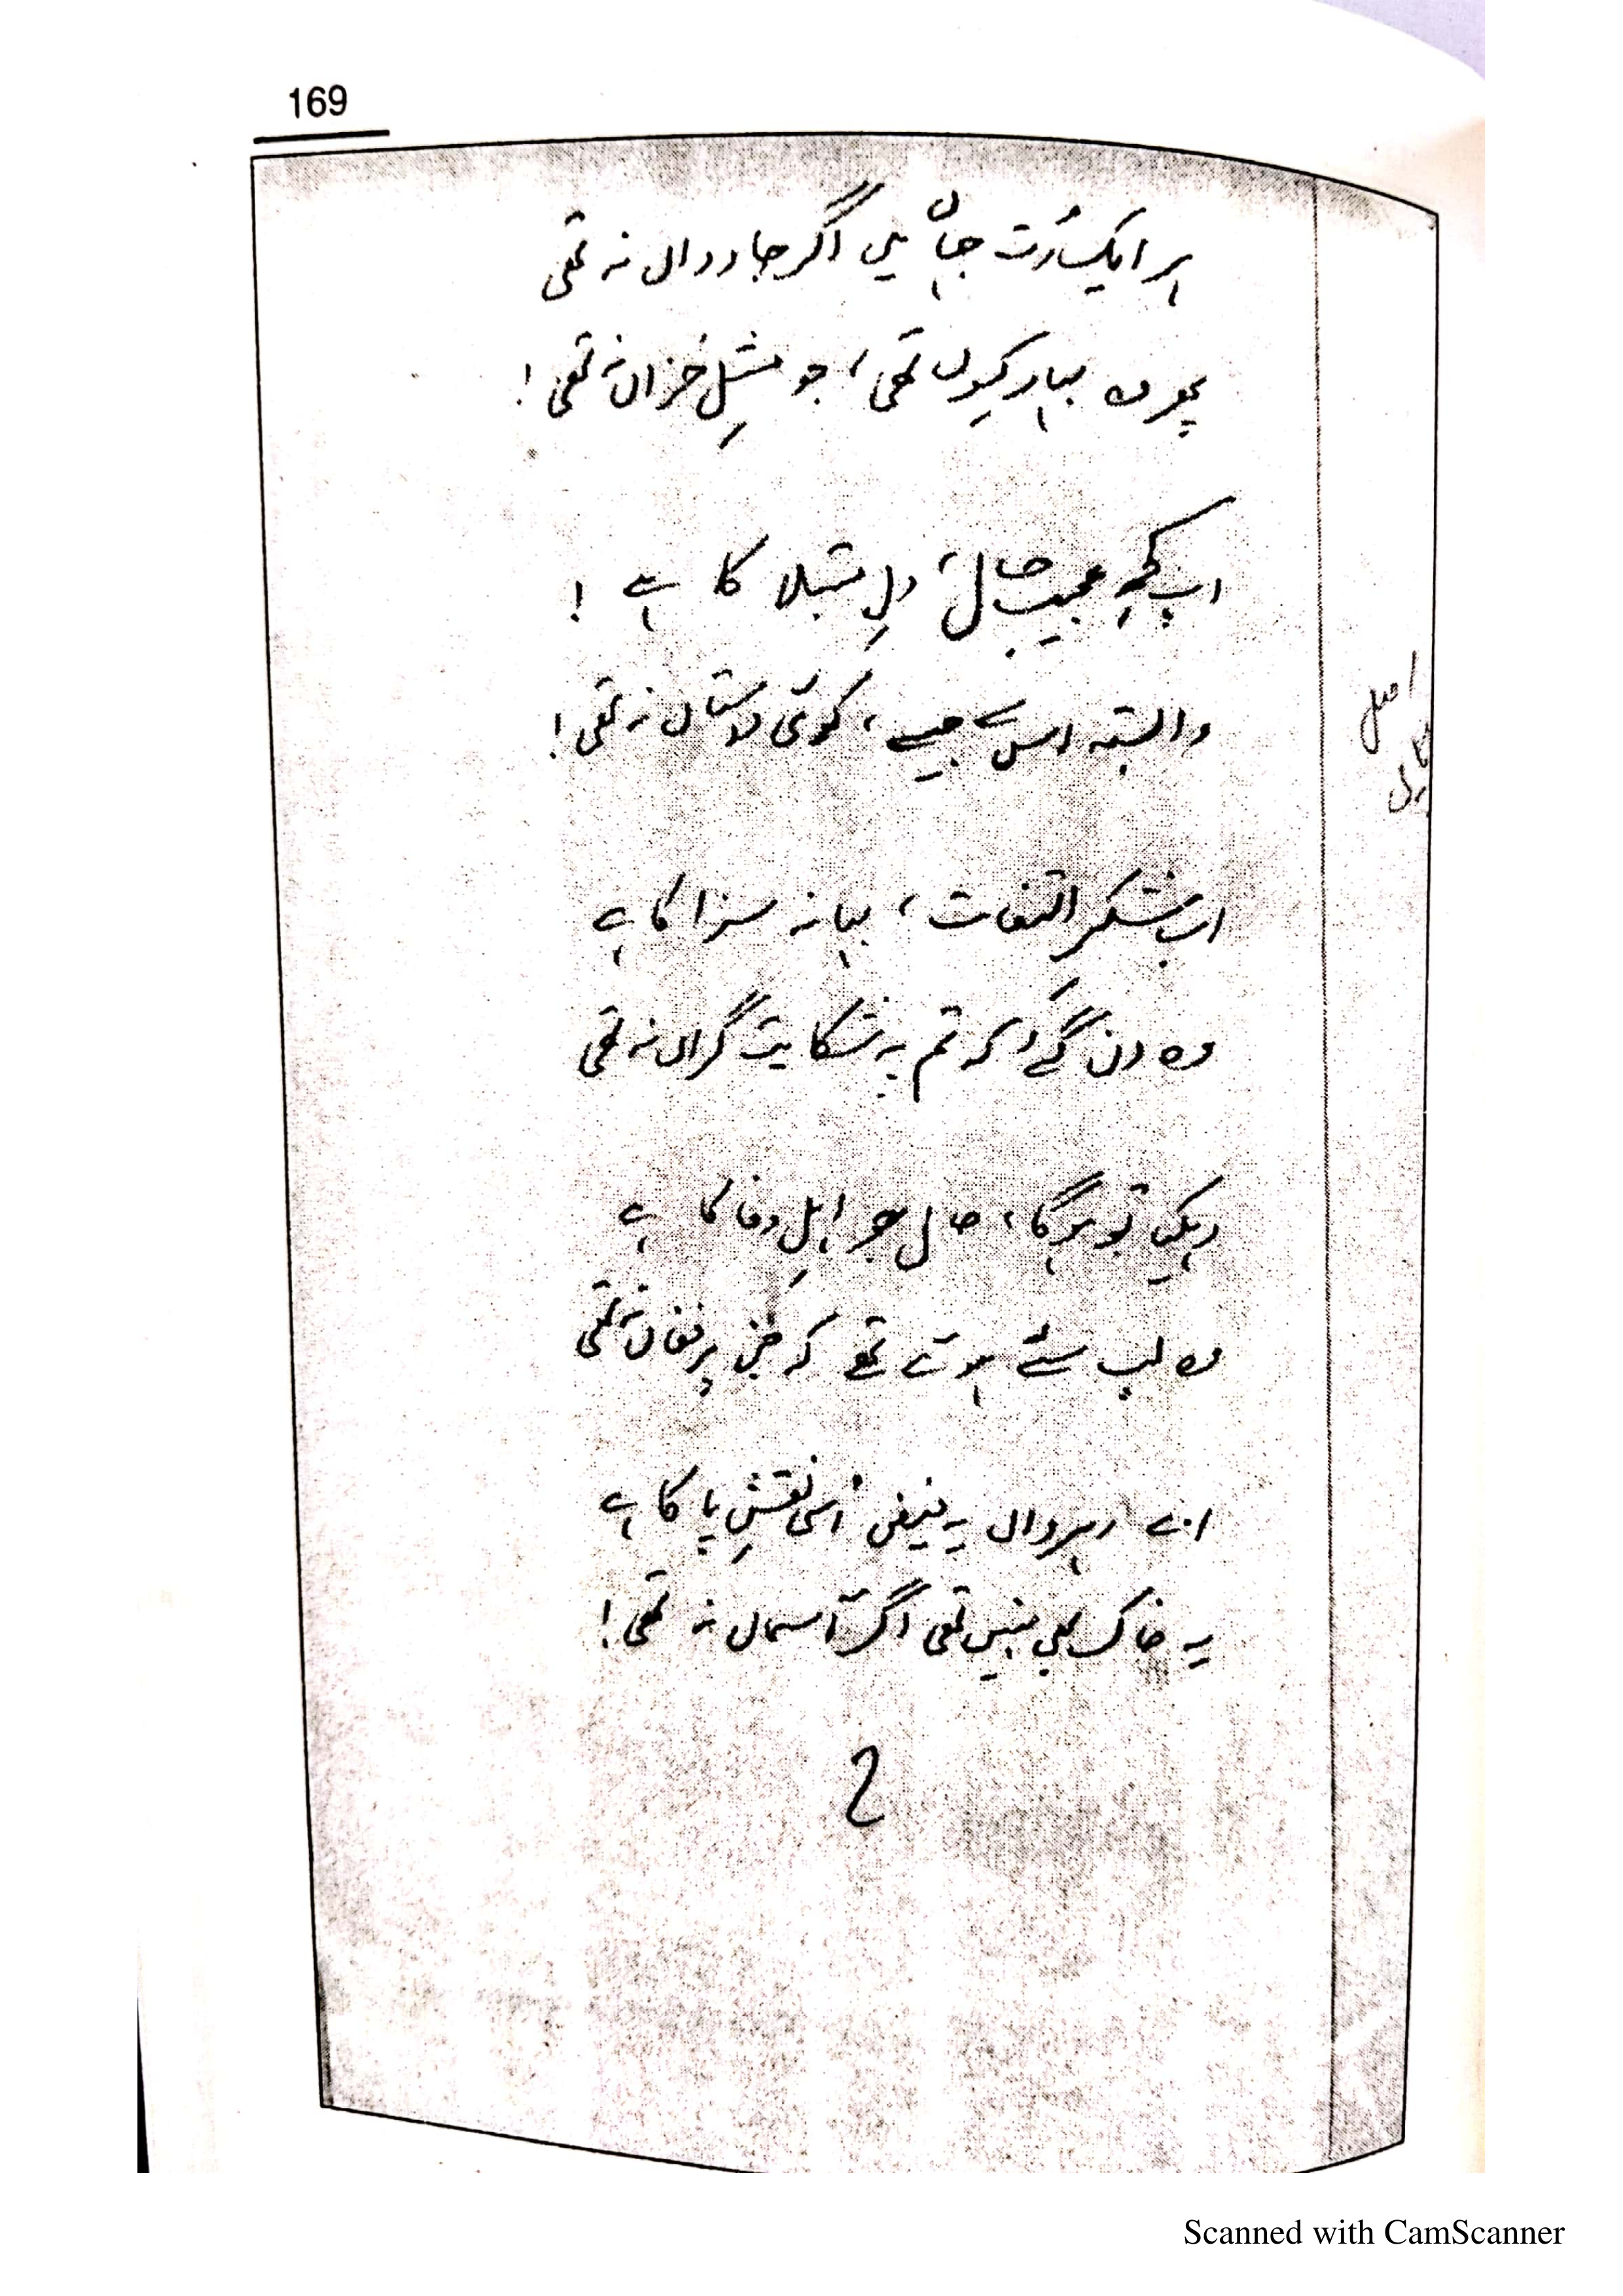 169
ہر ایک رُت جہاں میں اگر جاوداں نہ تھی
پھر وہ بہار کیوں تھی، جو مثلِ خزاں نہ تھی!
اب کچھ عجیب حال، دلِ مبتلا کا ہے!
وابستہ اس سے جیسے، کوئی داستاں نہ تھی!
اب شکرِ التفات، بہانہ سزا کا ہے
وہ دن گئے کہ تم پہ شکایت گراں نہ تھی
دیکھا تو ہوگا، حال جو اہلِ وفا کا ہے
وہ لب سئے ہوئے تھے کہ جن پر فغاں نہ تھی
اے رہرواں یہ فیض اُسی نقشِ پا کا ہے
یہ خاک بھی نہیں تھی اگر آسماں نہ تھی!
Scanned with CamScanner